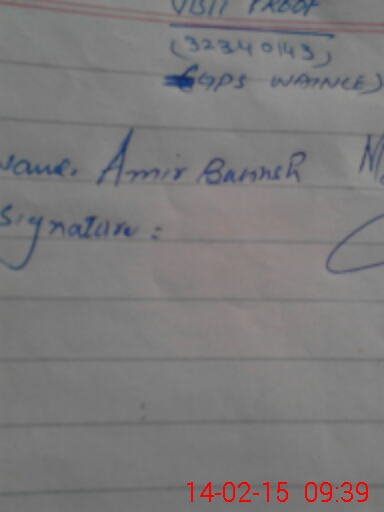 VISIT PROOF
(32340143)
(GPS WAINCE)
Name. Amir Bakhsh N
Signature:
14-02-15 09:39